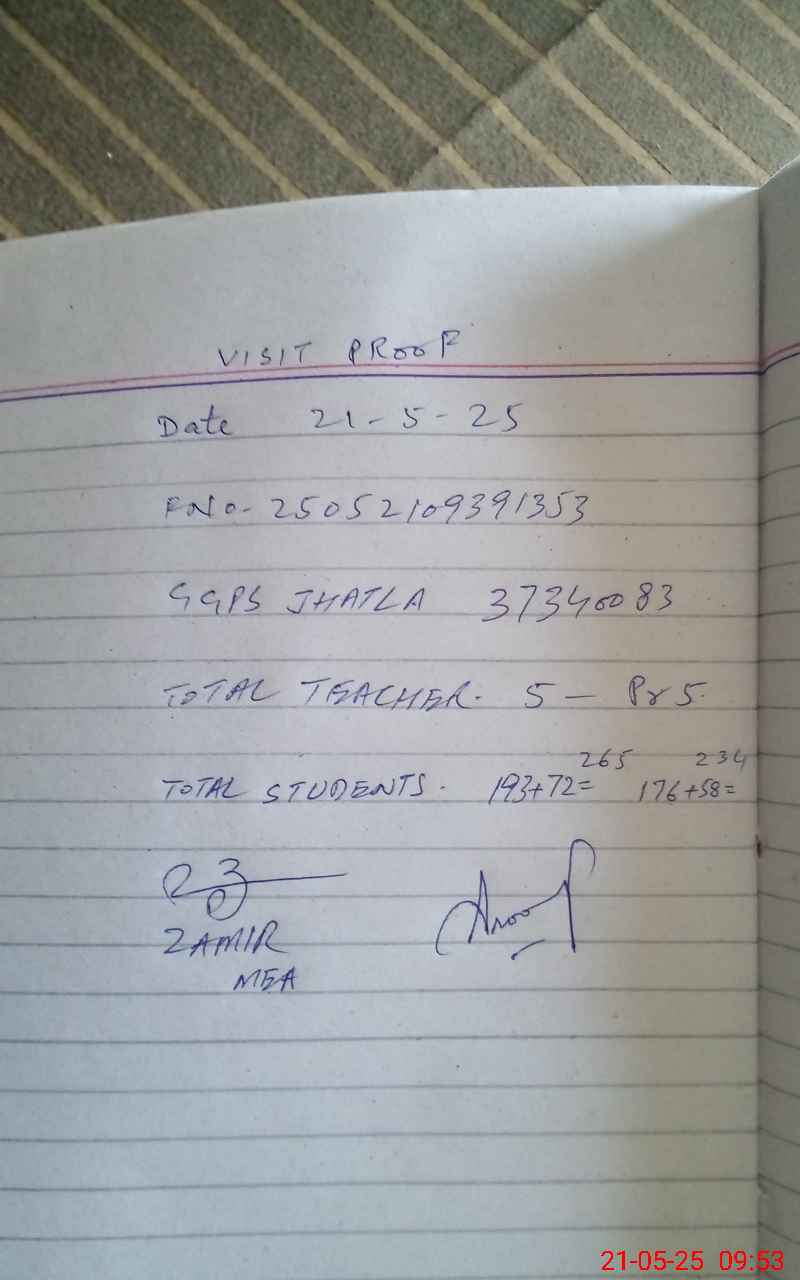 VISIT PROOF
Date 21-5-25
FNO- 25052109391353
GGPS JHATLA 37340083
TOTAL TEACHER. 5 — Pr 5.
TOTAL STUDENTS. 193+72=265 176+58=234
ZAMIR
MEA
21-05-25 09:53